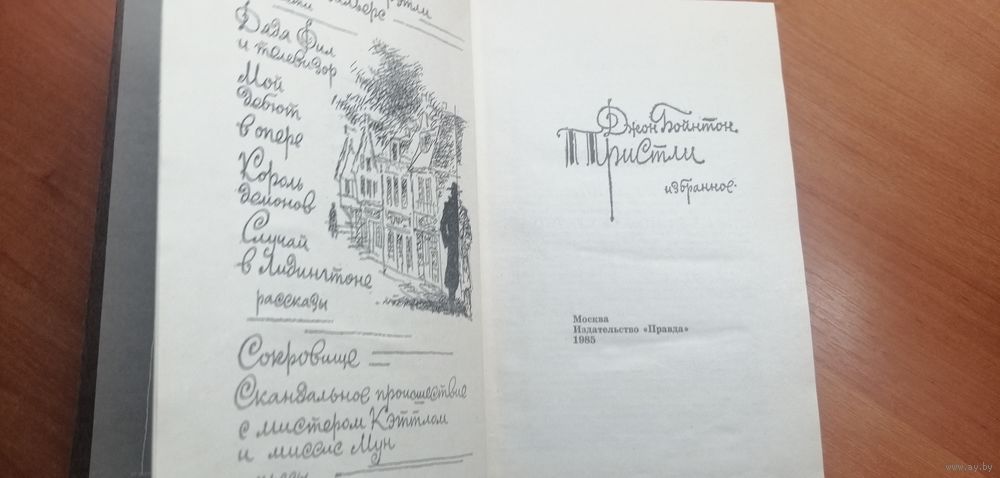 Дядя Фил
и телевизор
Мой
дебют
в опере
Король
демонов
Случай
в Лидингтоне
рассказы
Сокровище
Скандальное происшествие
с мистером Кэттлом
и миссис Мун
Джон Бойнтон
Пристли
избранное
Москва
Издательство «Правда»
1985
www.ay.by